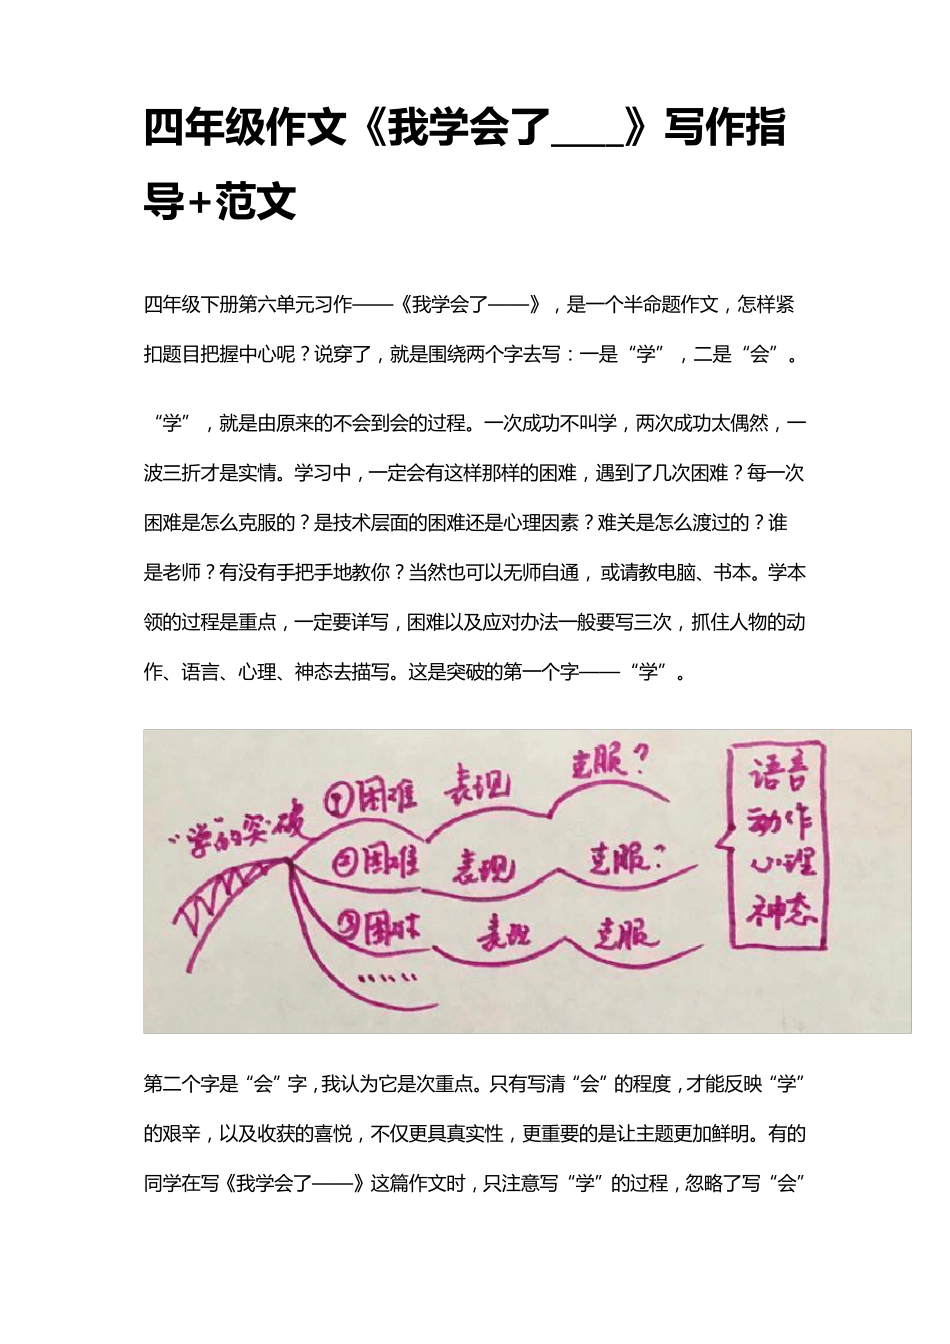 四年级作文《我学会了____》写作指
导+范文
四年级下册第六单元习作——《我学会了——》，是一个半命题作文，怎样紧
扣题目把握中心呢？说穿了，就是围绕两个字去写：一是“学”，二是“会”。
“学”，就是由原来的不会到会的过程。一次成功不叫学，两次成功太偶然，一
波三折才是实情。学习中，一定会有这样那样的困难，遇到了几次困难？每一次
困难是怎么克服的？是技术层面的困难还是心理因素？难关是怎么渡过的？谁
是老师？有没有手把手地教你？当然也可以无师自通，或请教电脑、书本。学本
领的过程是重点，一定要详写，困难以及应对办法一般要写三次，抓住人物的动
作、语言、心理、神态去描写。这是突破的第一个字——“学”。
“学”的突破
①困难 表现 克服？
②困难 表现 克服？
③困难 表现 克服
……
语言
动作
心理
神态
第二个字是“会”字，我认为它是次重点。只有写清“会”的程度，才能反映“学”
的艰辛，以及收获的喜悦，不仅更具真实性，更重要的是让主题更加鲜明。有的
同学在写《我学会了——》这篇作文时，只注意写“学”的过程，忽略了写“会”